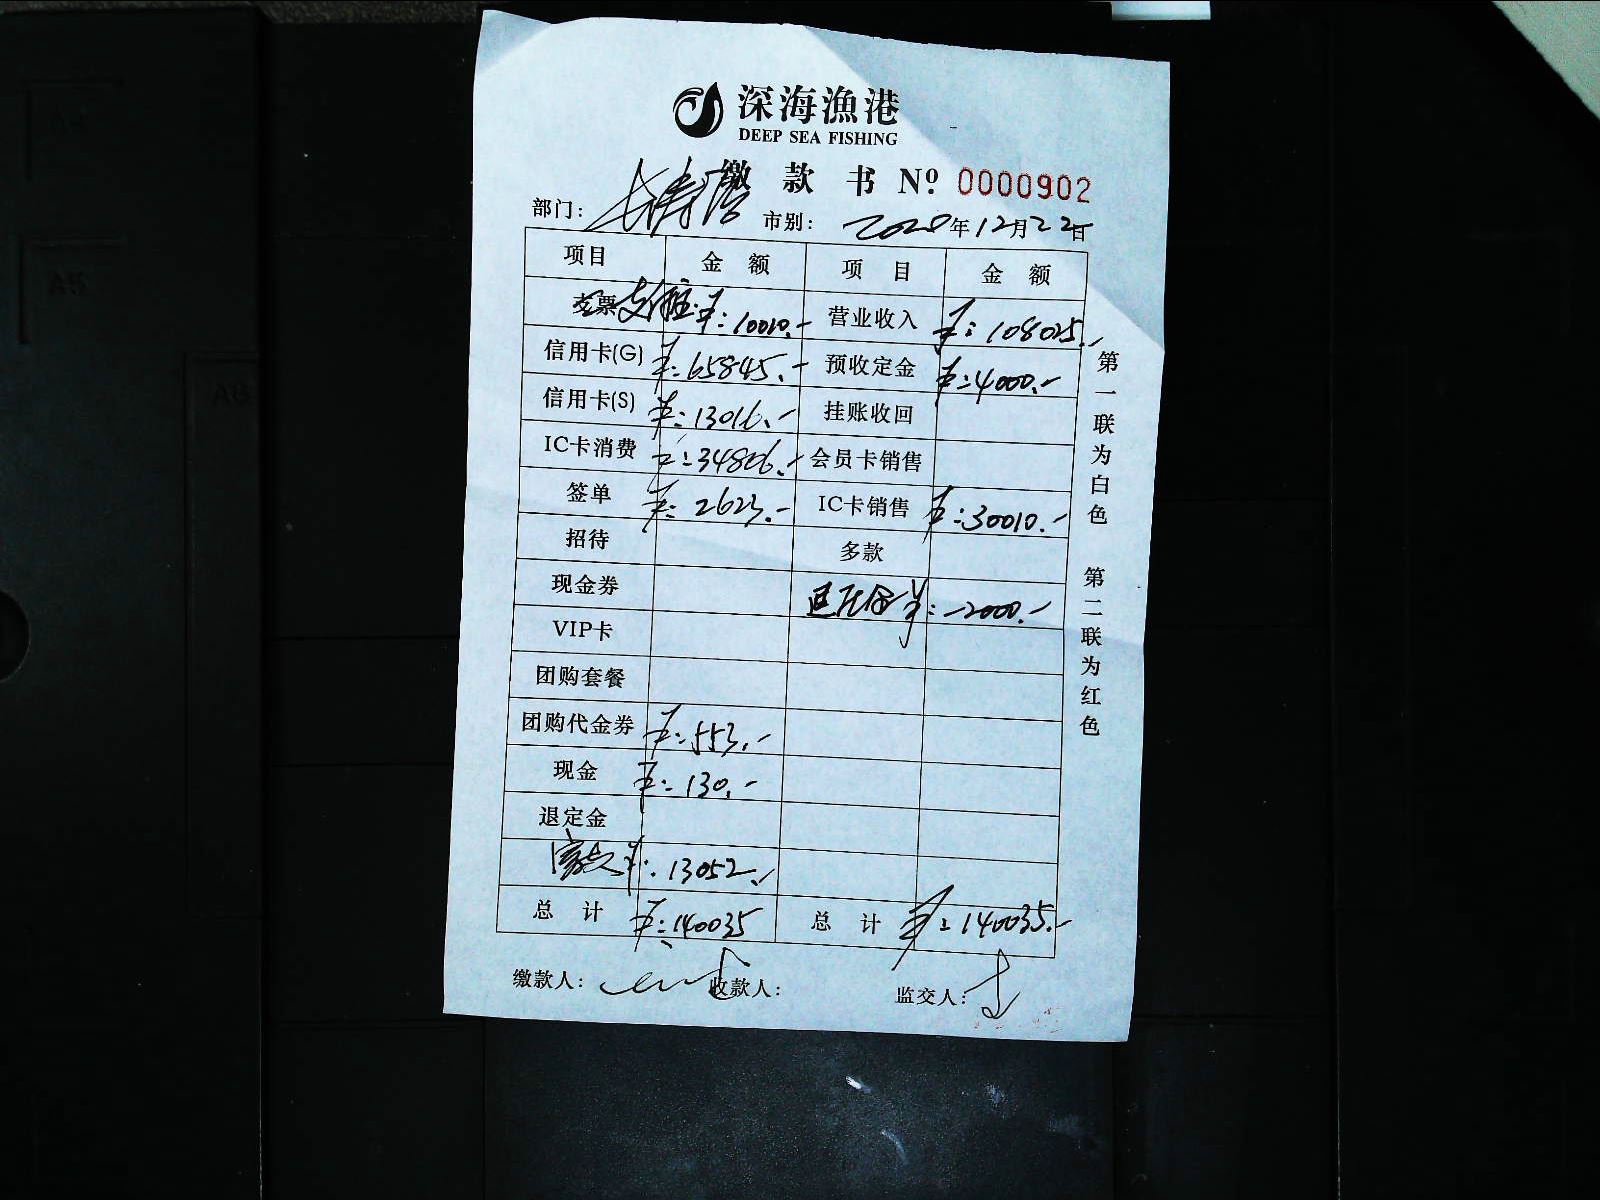 深海漁港
DEEP SEA FISHING
缴款书 Nº 0000902
部门: 市别: 2020年12月22日
项目 金额 项目 金额
支票 ¥:10010.- 营业收入 ¥:108025.-
信用卡(G) ¥:65845.- 预收定金 ¥:4000.-
信用卡(S) ¥:13016.- 挂账收回
IC卡消费 ¥:34806.- 会员卡销售
签单 ¥:2623.- IC卡销售 ¥:30010.-
招待 多款
现金券 退定金 ¥:-2000.-
VIP卡
团购套餐
团购代金券 ¥:553.-
现金 ¥:130.-
退定金
¥:13052.-
总计 ¥:140035 总计 ¥:140035.-
缴款人: 收款人: 监交人:
第一联为白色 第二联为红色